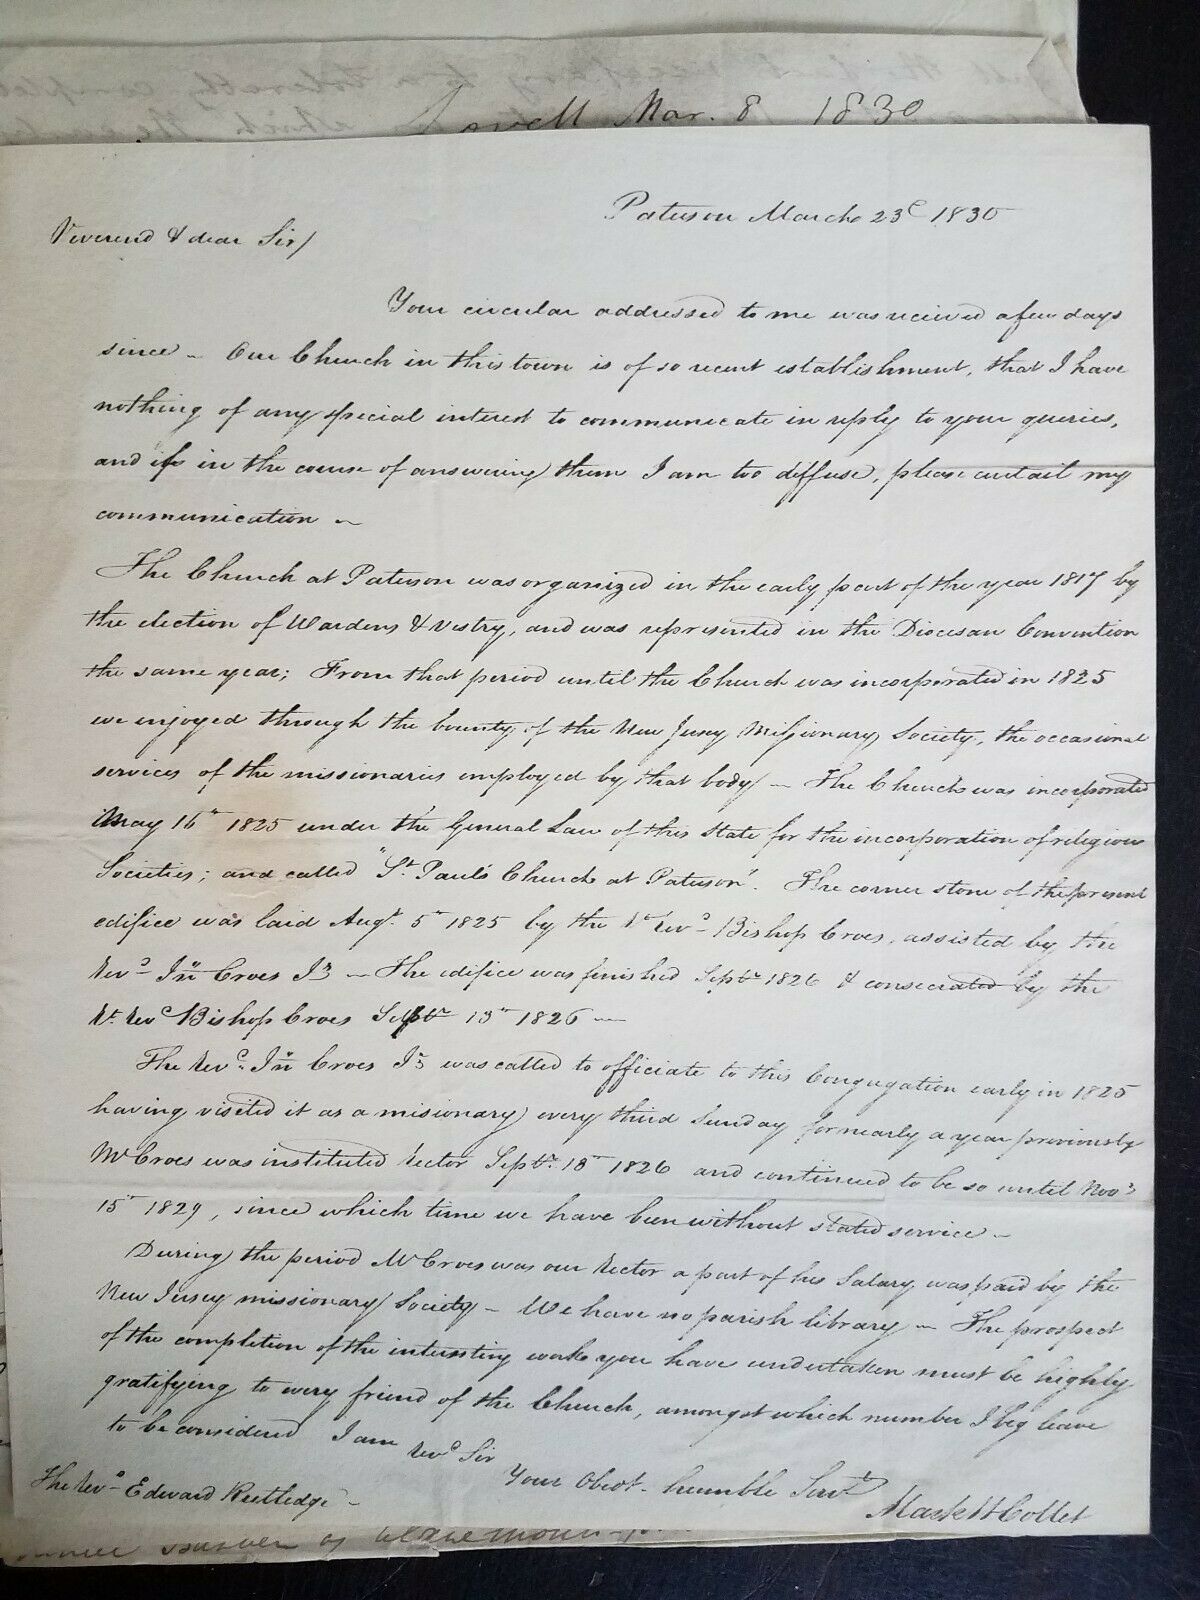 Lowell Mar. 8 1830
Paterson March 23d 1830
Reverend & dear Sir/
Your circular addressed to me was received a few days
since – Our Church in this town is of so recent establishment, that I have
nothing of any special interest to communicate in reply to your queries,
and if in the course of answering them I am too diffuse, please curtail my
communication –
The Church at Paterson was organized in the early part of the year 1817 by
the election of Wardens & Vestry, and was represented in the Diocesan Convention
the same year; From that period until the Church was incorporated in 1825
we enjoyed through the bounty of the New Jersey Missionary Society, the occasional
services of the missionaries employed by that body – The Church was incorporated
May 16th 1825 under the General Law of this State for the incorporation of religious
Societies; and called "St. Paul's Church at Paterson". The corner stone of the present
edifice was laid Augt. 5th 1825 by the Rt Revd. Bishop Croes, assisted by the
Revd. Jno Croes Jr – The edifice was finished Septr 1826 & consecrated by the
Rt. Revd Bishop Croes Septr 13th 1826 –
The Revd. Jno Croes Jr was called to officiate to this Congregation early in 1825
having visited it as a misionary every third Sunday for nearly a year previously
Mr Croes was instituted Rector Septr. 13th 1826 and continued to be so until Novr
15th 1829, since which time we have been without stated service –
During the period Mr Croes was our Rector a part of his Salary was paid by the
New Jersey missionary Society – We have no parish library – The prospect
of the completion of the interesting work you have undertaken must be highly
gratifying to every friend of the Church, amongst which number I beg leave
to be considered I am Revd Sir
Your Obedt. humble Servt
The Revd Edward Rutledge –
Mark W Collet